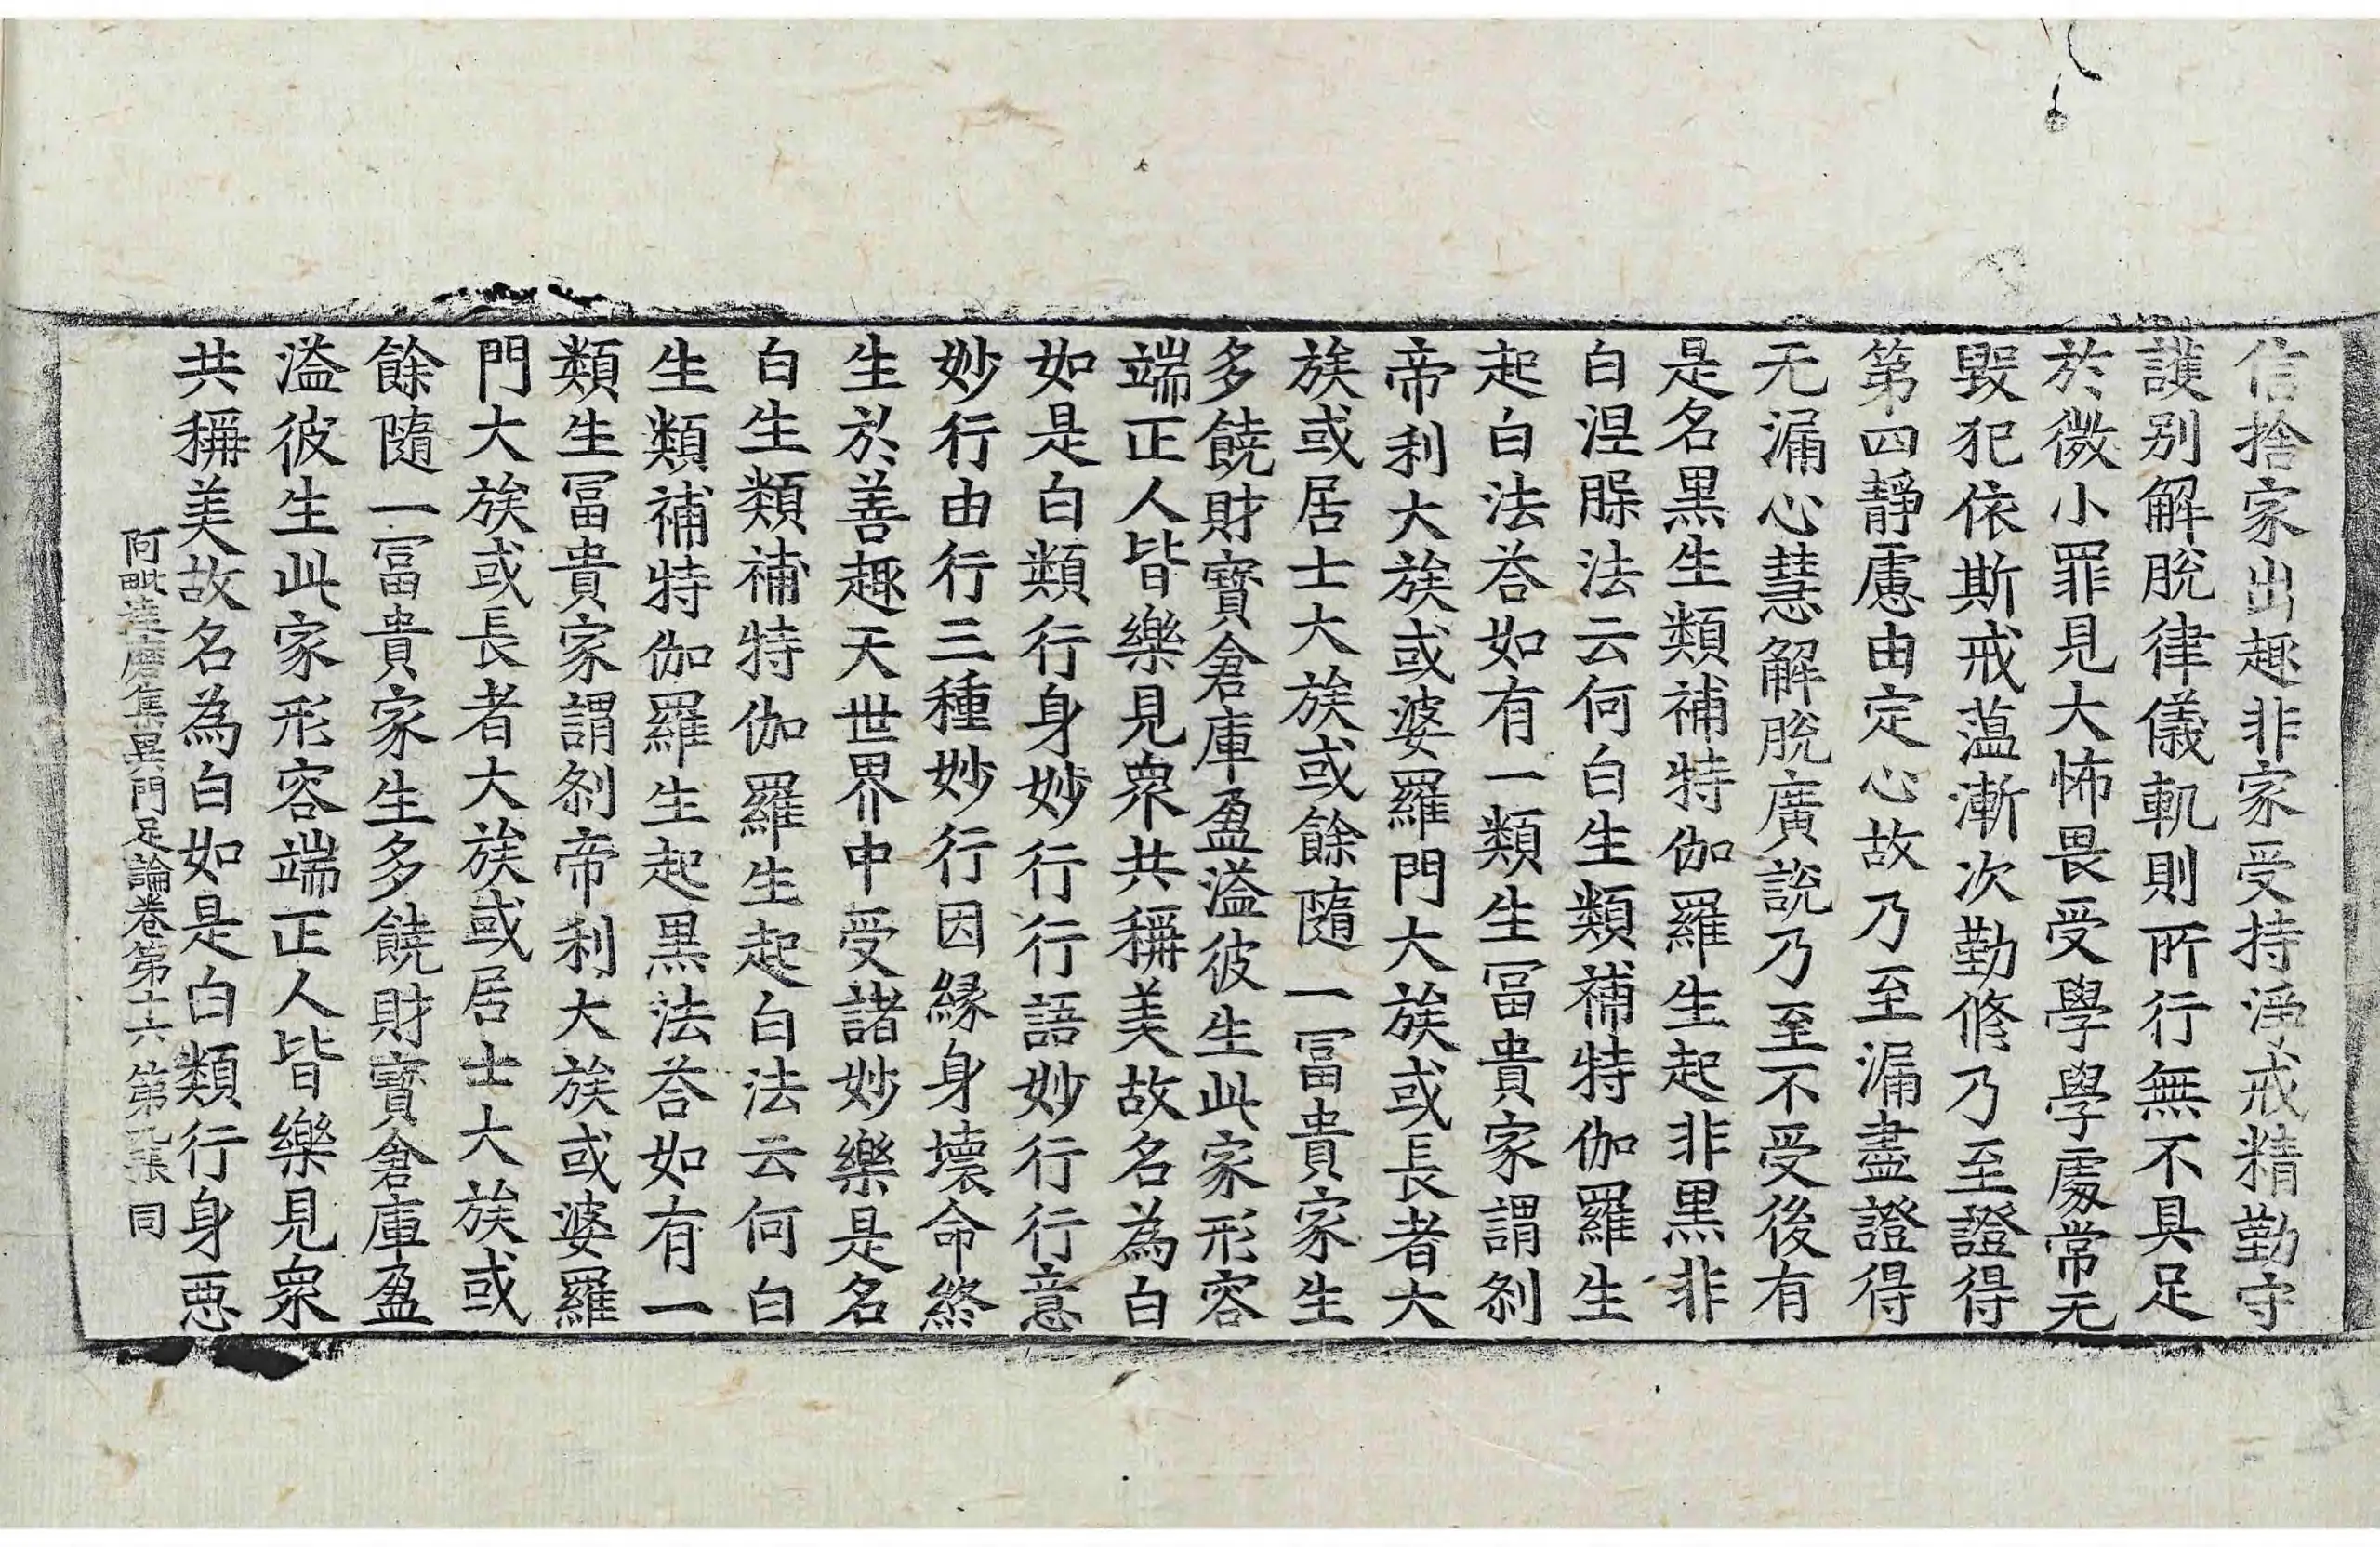 信捨家出趣非家受持淨戒精勤守
護别解脫律儀軌則所行無不具足
於微小罪見大怖畏受學學處常无
毀犯依斯戒蕰漸次勤修乃至證得
第四靜慮由定心故乃至漏盡證得
无漏心慧解脫廣說乃至不受後有
是名黑生類補特伽羅生起非黑非
白涅腂法云何白生類補特伽羅生
起白法荅如有一類生冨貴家謂刹
帝利大族或婆羅門大族或長者大
族或居士大族或餘隨一冨貴家生
多饒財寶倉庫盈溢彼生此家形容
端正人皆樂見衆共稱美故名為白
如是白類行身妙行行語妙行行意
妙行由行三種妙行因緣身壞命終
生於善趣天世界中受諸妙樂是名
白生類補特伽羅生起白法云何白
生類補特伽羅生起黑法荅如有一
類生冨貴家謂刹帝利大族或婆羅
門大族或長者大族或居士大族或
餘隨一冨貴家生多饒財寶倉庫盈
溢彼生此家形容端正人皆樂見衆
共稱美故名為白如是白類行身惡
阿毗達磨集異門足論卷第十六 第張 同